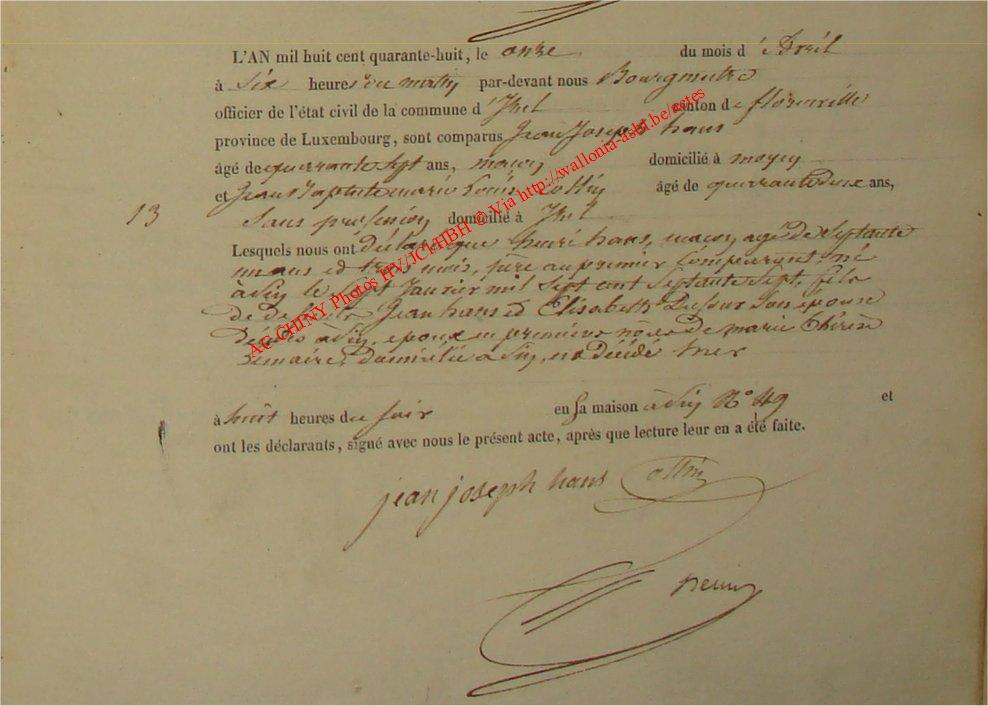 L'AN mil huit cent quarante-huit, le onze du mois d'Avril
à six heures du matin par-devant nous Bourgmestre
officier de l'état civil de la commune d'Izel canton de florenville
province de Luxembourg, sont comparus Jean Joseph hans
âgé de quarante sept ans, maçon domicilié à moyen
et Jean Baptiste marie Louis ollin âgé de quarante deux ans,
13 Sans profession domicilié à Izel
Lesquels nous ont déclaré que henri hans, maçon, agé de Septante
un ans et trois mois, père au premier comparant, né
à le Sept Janvier mil Sept cent Septante Sept, fils
de Jean hans et Elisabeth Son épouse
décédés à epoux en premières noces de marie thérèse
Lemaire, domicilié à est décédé hier
à huit heures du soir en Sa maison à N° 49 et
ont les déclarants, signé avec nous le présent acte, après que lecture leur en a été faite.
jean joseph hans ollin
AC CHINY Photos HV/JCH/HBH © Via http://wallonia-asbl.be/actes